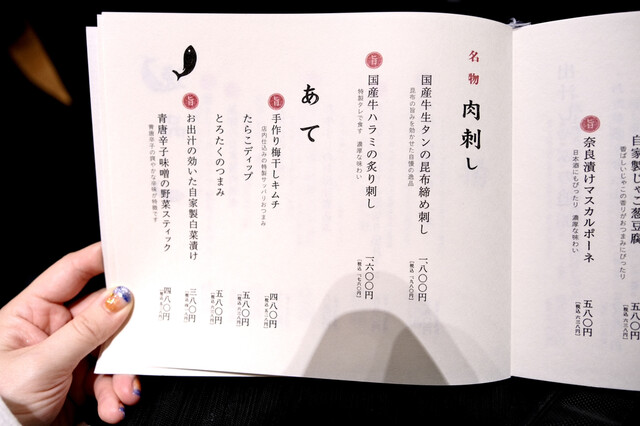 自家製じゃこ葱豆腐
香ばしいじゃこの香りがおつまみにぴったり
五八〇円
(税込 六三八円)
旨
奈良漬けマスカルポーネ
日本酒にもぴったり 濃厚な味わい
五八〇円
(税込 六三八円)
名物 肉刺し
国産牛生タンの昆布締め刺し
昆布の旨みを効かせた自慢の逸品
一、八〇〇円
(税込 一、九八〇円)
旨
国産牛ハラミの炙り刺し
特製タレで食す 濃厚な味わい
一、六〇〇円
(税込 一、七六〇円)
あて
旨
手作り梅干しキムチ
店内仕込みの特製サッパリおつまみ
四八〇円
(税込 五二八円)
たらこディップ
五八〇円
(税込 六三八円)
とろたくのつまみ
五八〇円
(税込 六三八円)
旨
お出汁の効いた自家製白菜漬け
三八〇円
(税込 四一八円)
青唐辛子味噌の野菜スティック
青唐辛子の爽やかな辛味が特徴です
四八〇円
(税込 五二八円)